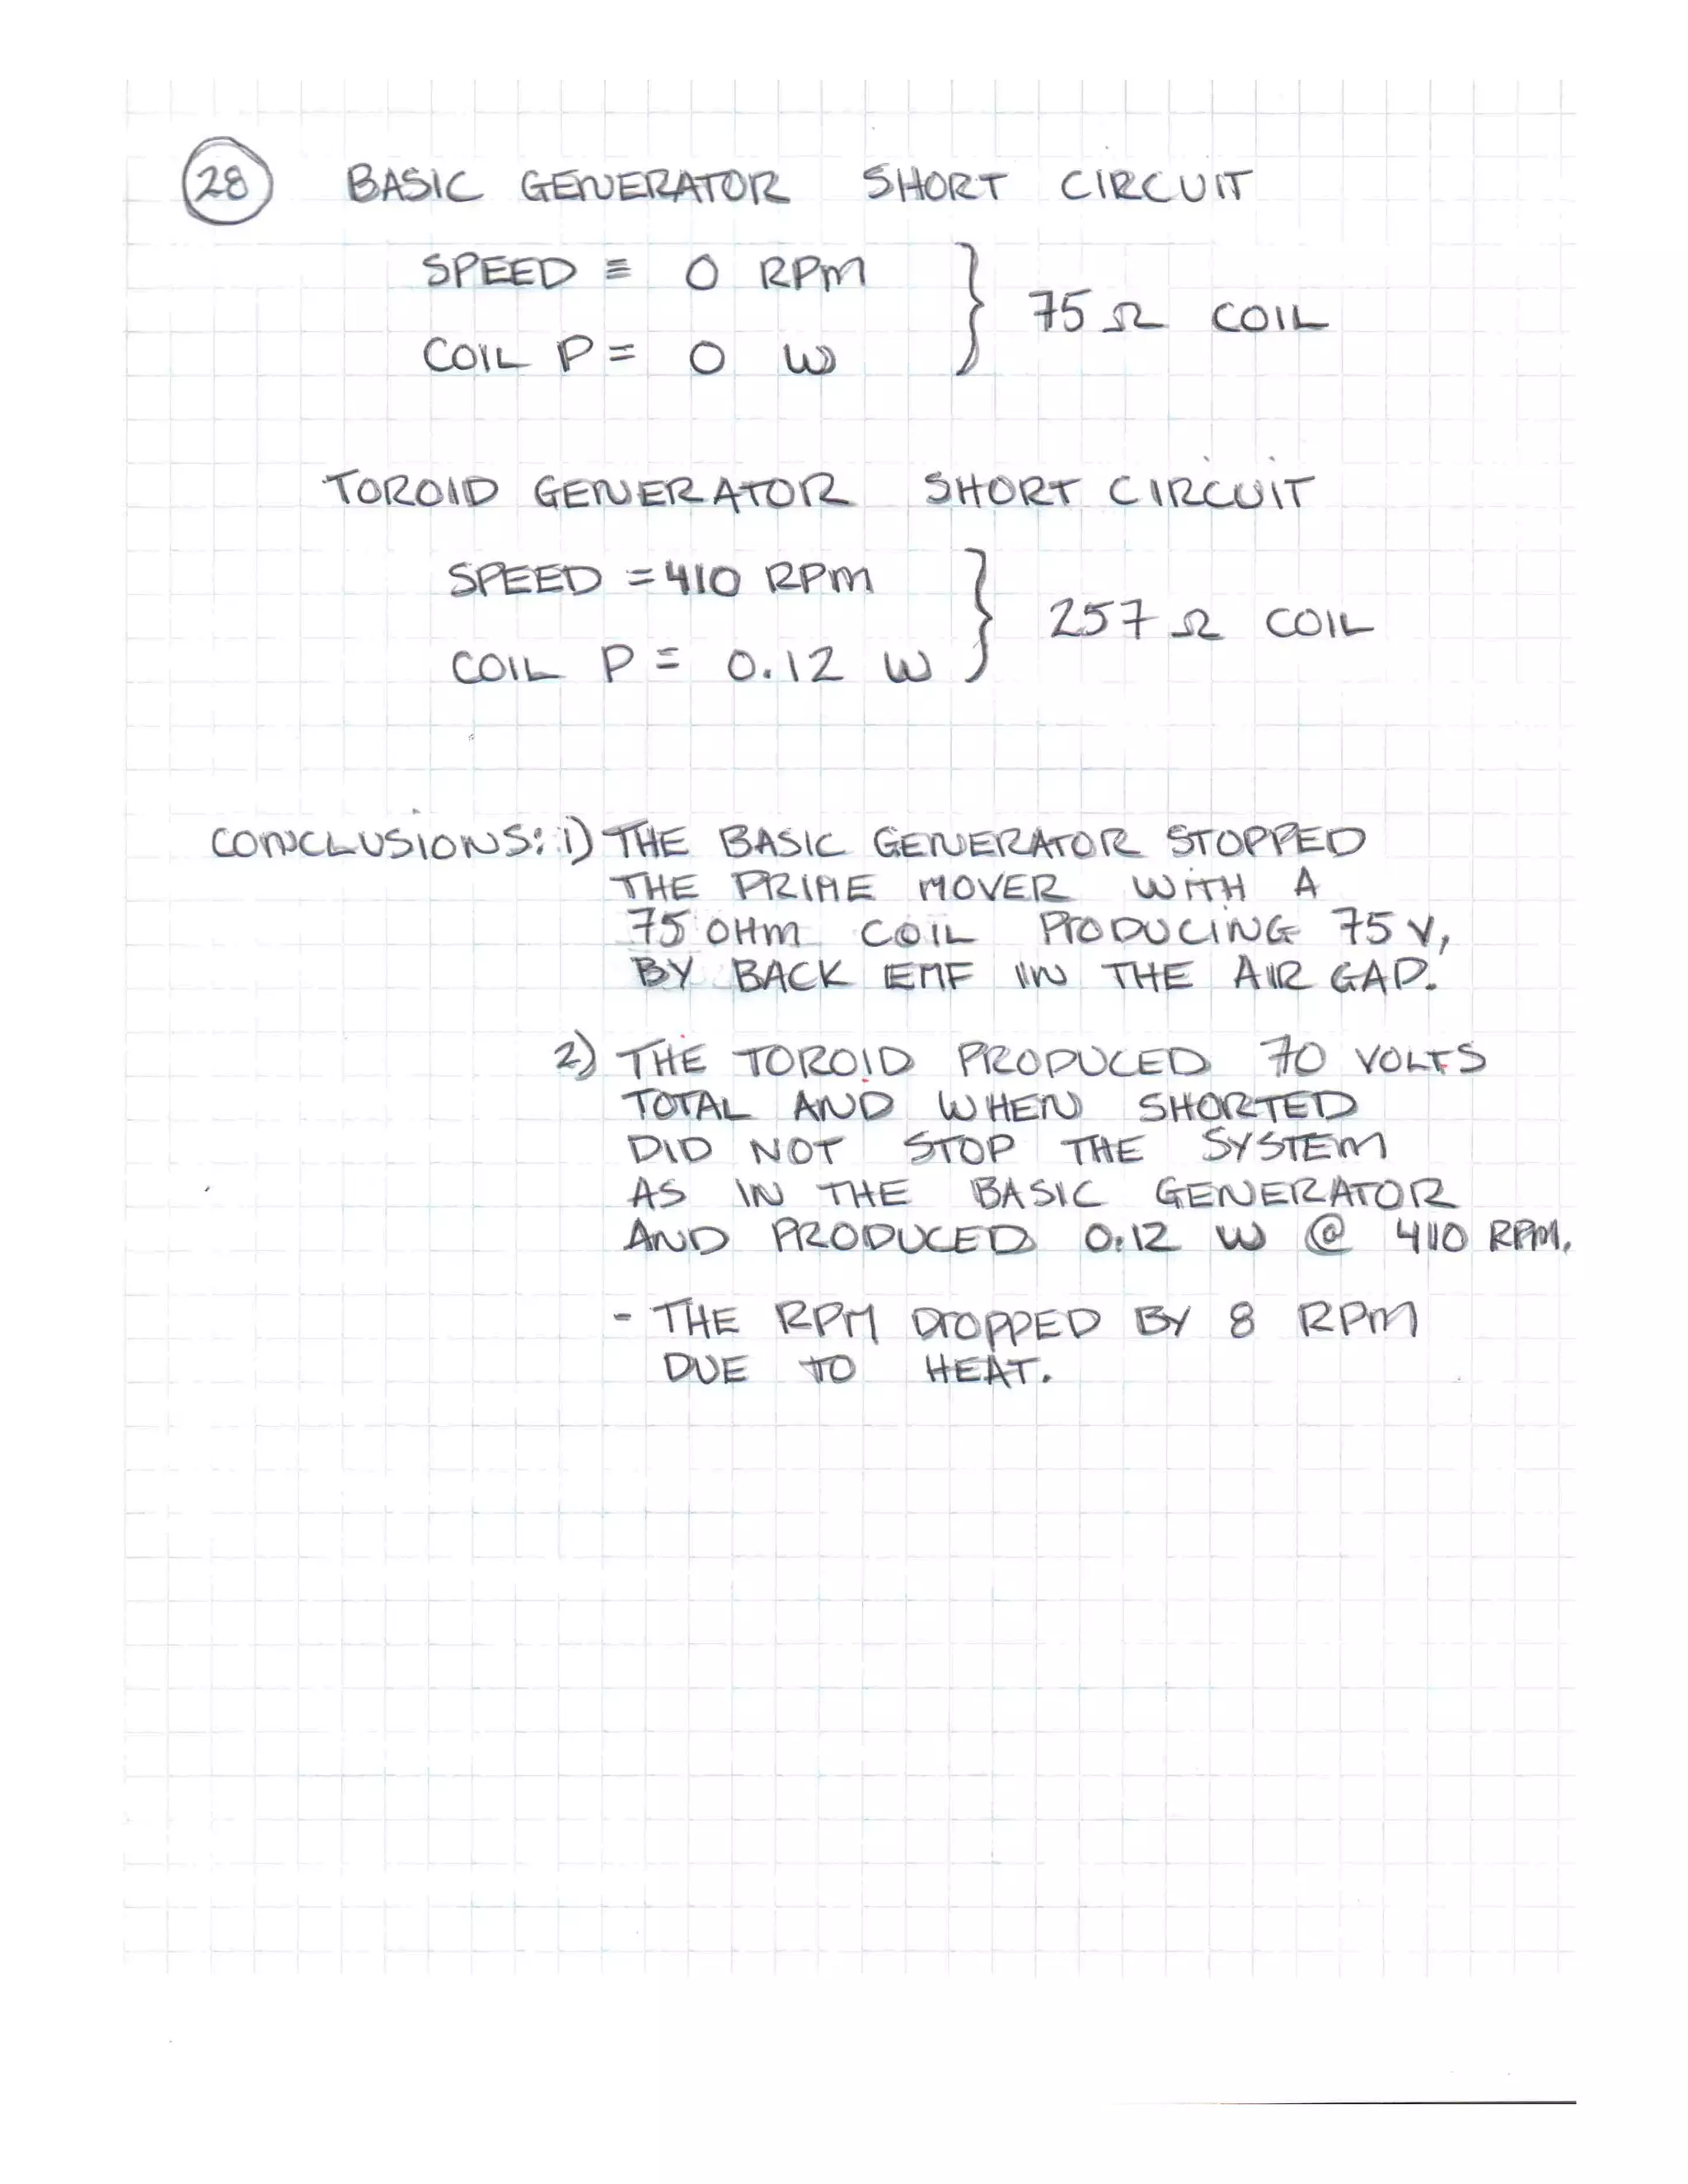 28 BASIC GENERATOR SHORT CIRCUIT
SPEED = 0 RPM
75 Ω COIL
COIL P = 0 W
TOROID GENERATOR SHORT CIRCUIT
SPEED = 410 RPM
257 Ω COIL
COIL P = 0.12 W
CONCLUSIONS: 1) THE BASIC GENERATOR STOPPED
THE PRIME MOVER WITH A
75 OHM COIL PRODUCING 75 V,
BY BACK EMF IN THE AIR GAP.
2) THE TOROID PRODUCED 70 VOLTS
TOTAL AND WHEN SHORTED
DID NOT STOP THE SYSTEM
AS IN THE BASIC GENERATOR
AND PRODUCED 0.12 W @ 410 RPM.
- THE RPM DROPPED BY 8 RPM
DUE TO HEAT.